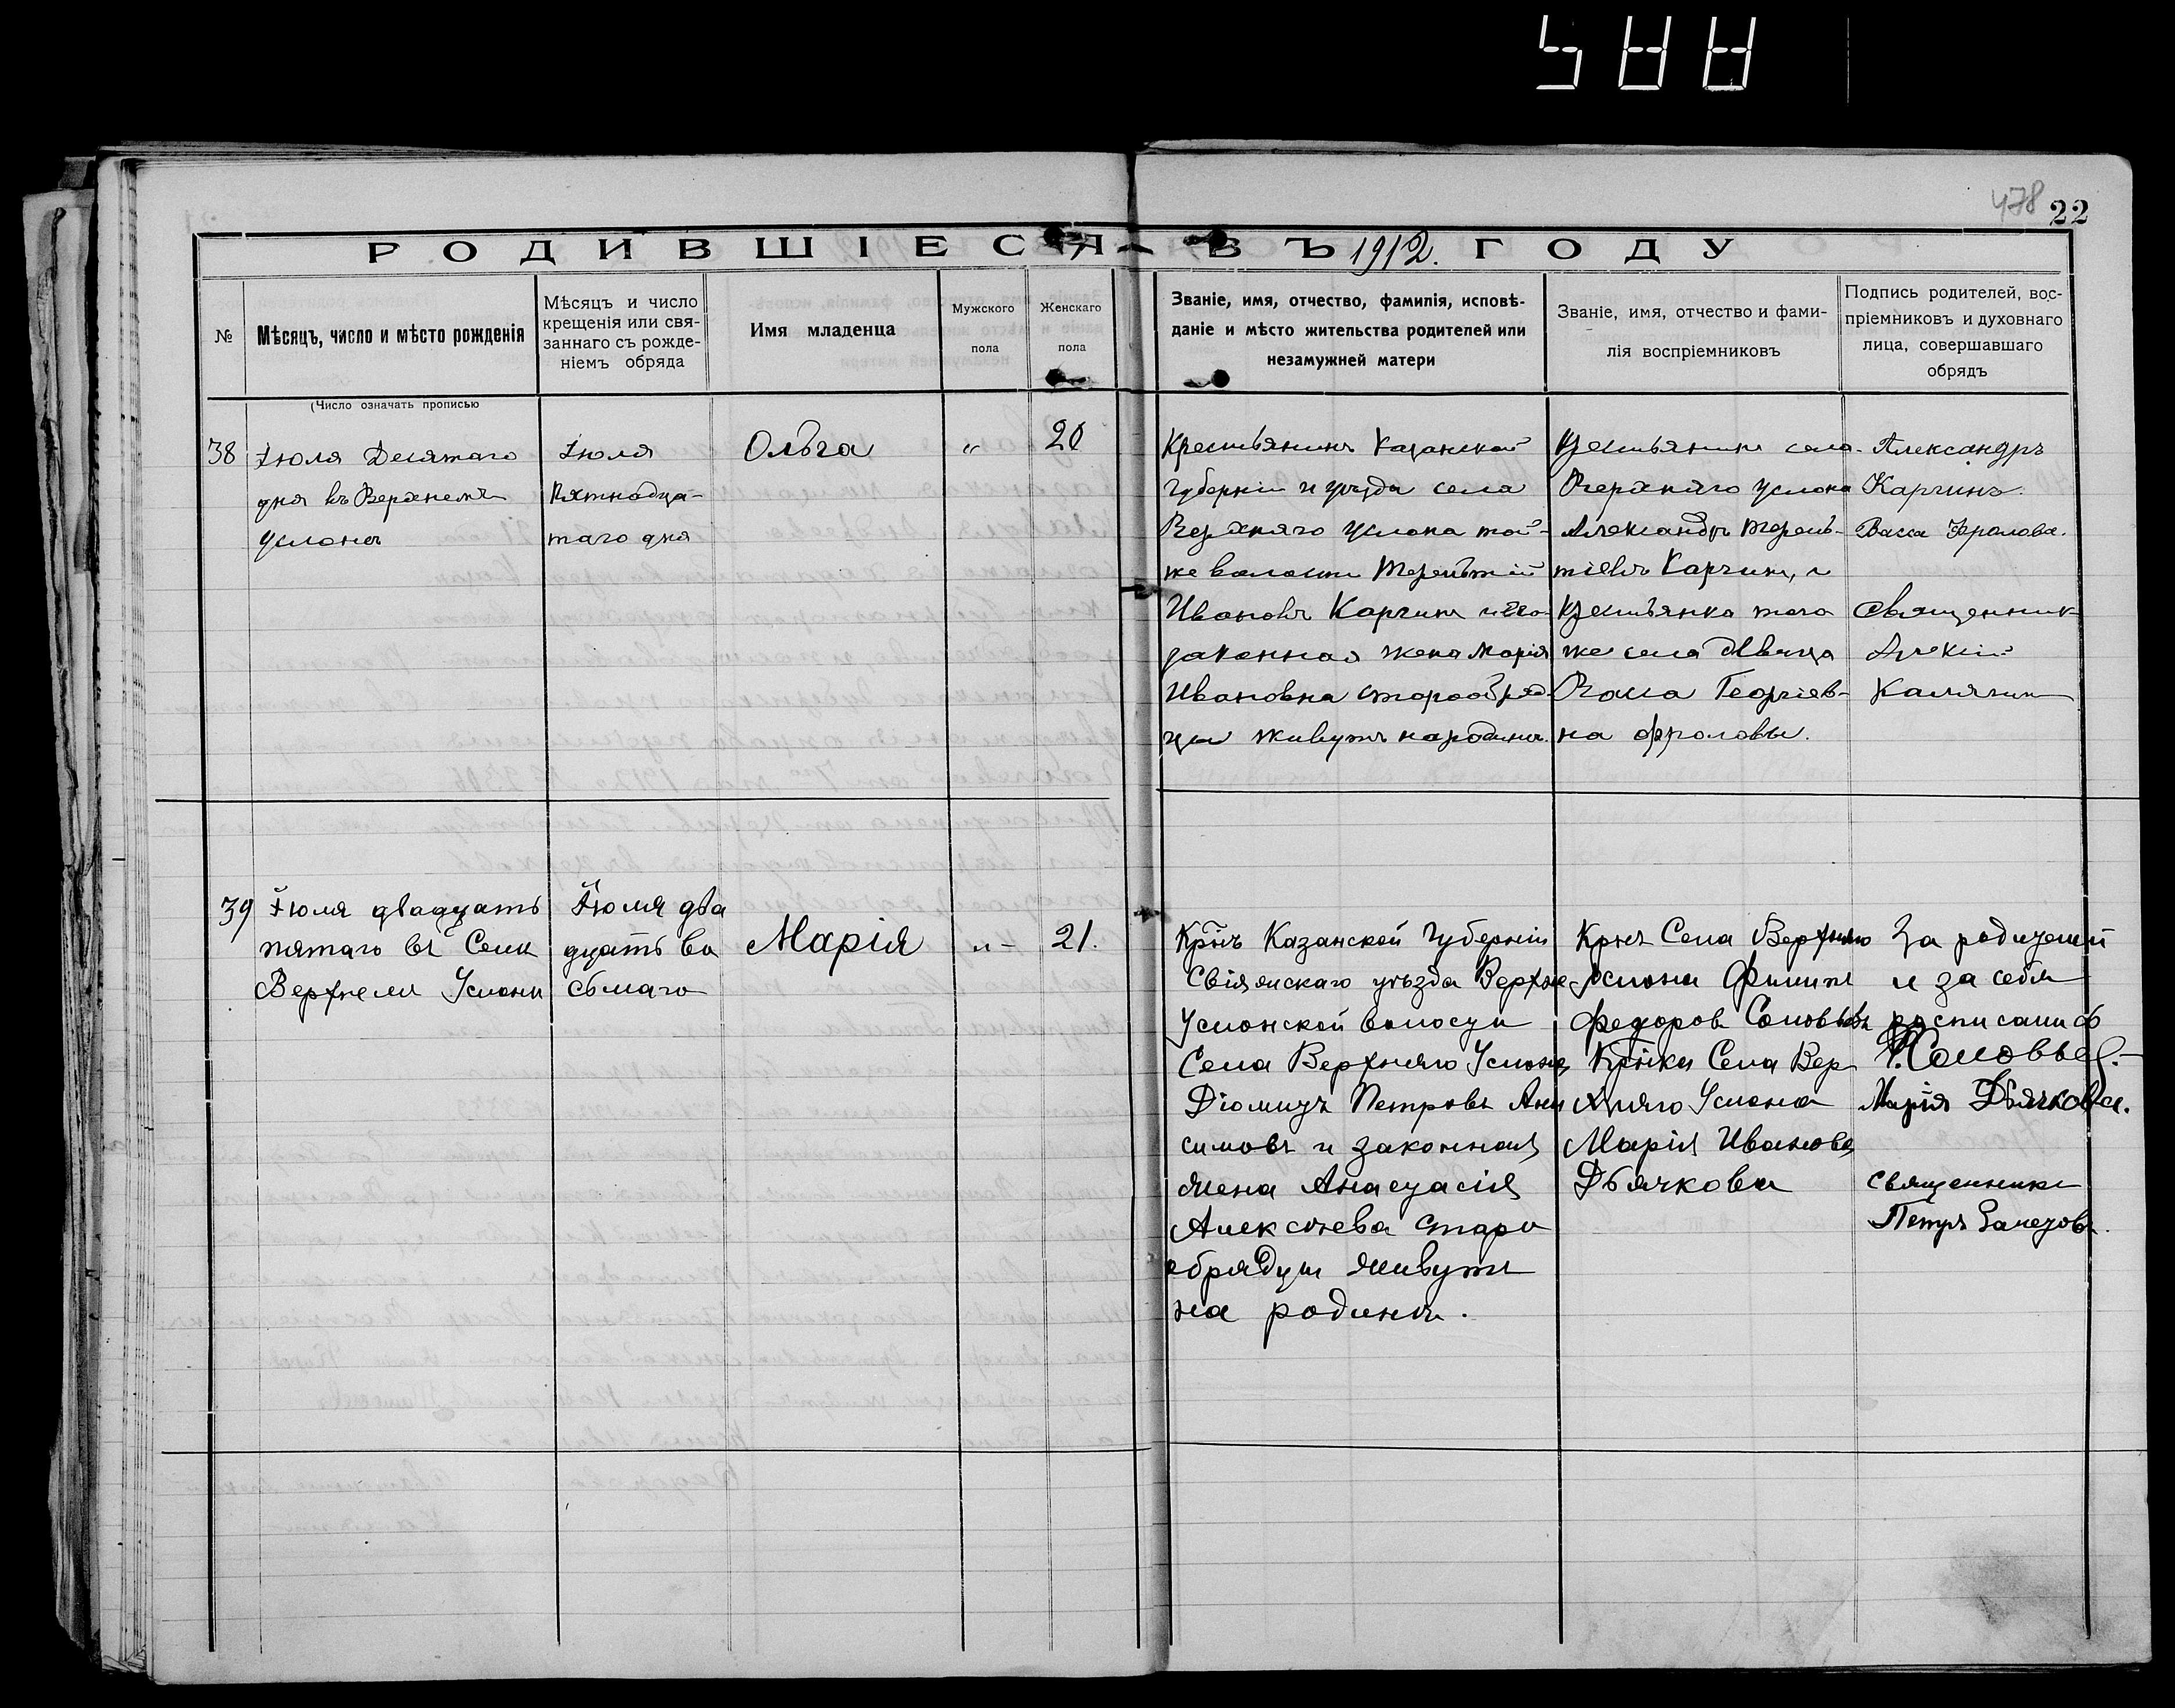 588
478 22
РОДИВШІЕСЯ ВЪ 1912. ГОДУ
№
Мѣсяцъ, число и мѣсто рожденія
Мѣсяцъ и число
крещенія или свя-
заннаго съ рожде-
ніемъ обряда
Имя младенца
Мужского
пола
Женскаго
пола
Званіе, имя, отчество, фамилія, исповѣ-
даніе и мѣсто жительства родителей или
незамужней матери
Званіе, имя, отчество и фами-
лія воспріемниковъ
Подпись родителей, вос-
пріемниковъ и духовнаго
лица, совершавшаго
обрядъ
(Число означать прописью
38
Іюля Десятаго
дня въ Верхнемъ
Услонѣ
Іюля
Пятнадца-
таго дня
Ольга
"
20
Крестьянинъ Казанской
Губерніи и уѣзда села
Верхняго Услона той-
же волости Терентій
Ивановъ Карчинъ и его
законная жена Марія
Ивановна старообряд-
цы живутъ на родинѣ.
Крестьянинъ села
Верхняго Услона
Александръ Терень-
тіевъ Карчинъ, и
Крестьянка того
же села Дѣвица
Васса Георгіев-
на Фролова.
Александръ
Карчинъ.
Васса Фролова.
Священник
Алексій
Калягин
39
Іюля двадцать
пятаго въ Селѣ
Верхнемъ Услонѣ
Іюля два
дцать во
сьмаго
Марія
" -
21.
Крнъ Казанской Губерніи
Свіяжскаго уѣзда Верхне-
Услонской волости
Села Верхняго Услона
Діомидъ Петровъ Ани
симовъ и законная
жена Анастасія
Алексѣева Старо
обрядцы живутъ
на родинѣ.
Крнъ Села Верхняго
Услона Филипъ
Федоров Соловьевъ
Крнка Села Вер
хняго Услона
Марія Иванова
Дьячкова
За родителей
и за себя
росписались
Ф. Соловьев.-
Марія Дьячкова.
Священникъ
Петръ